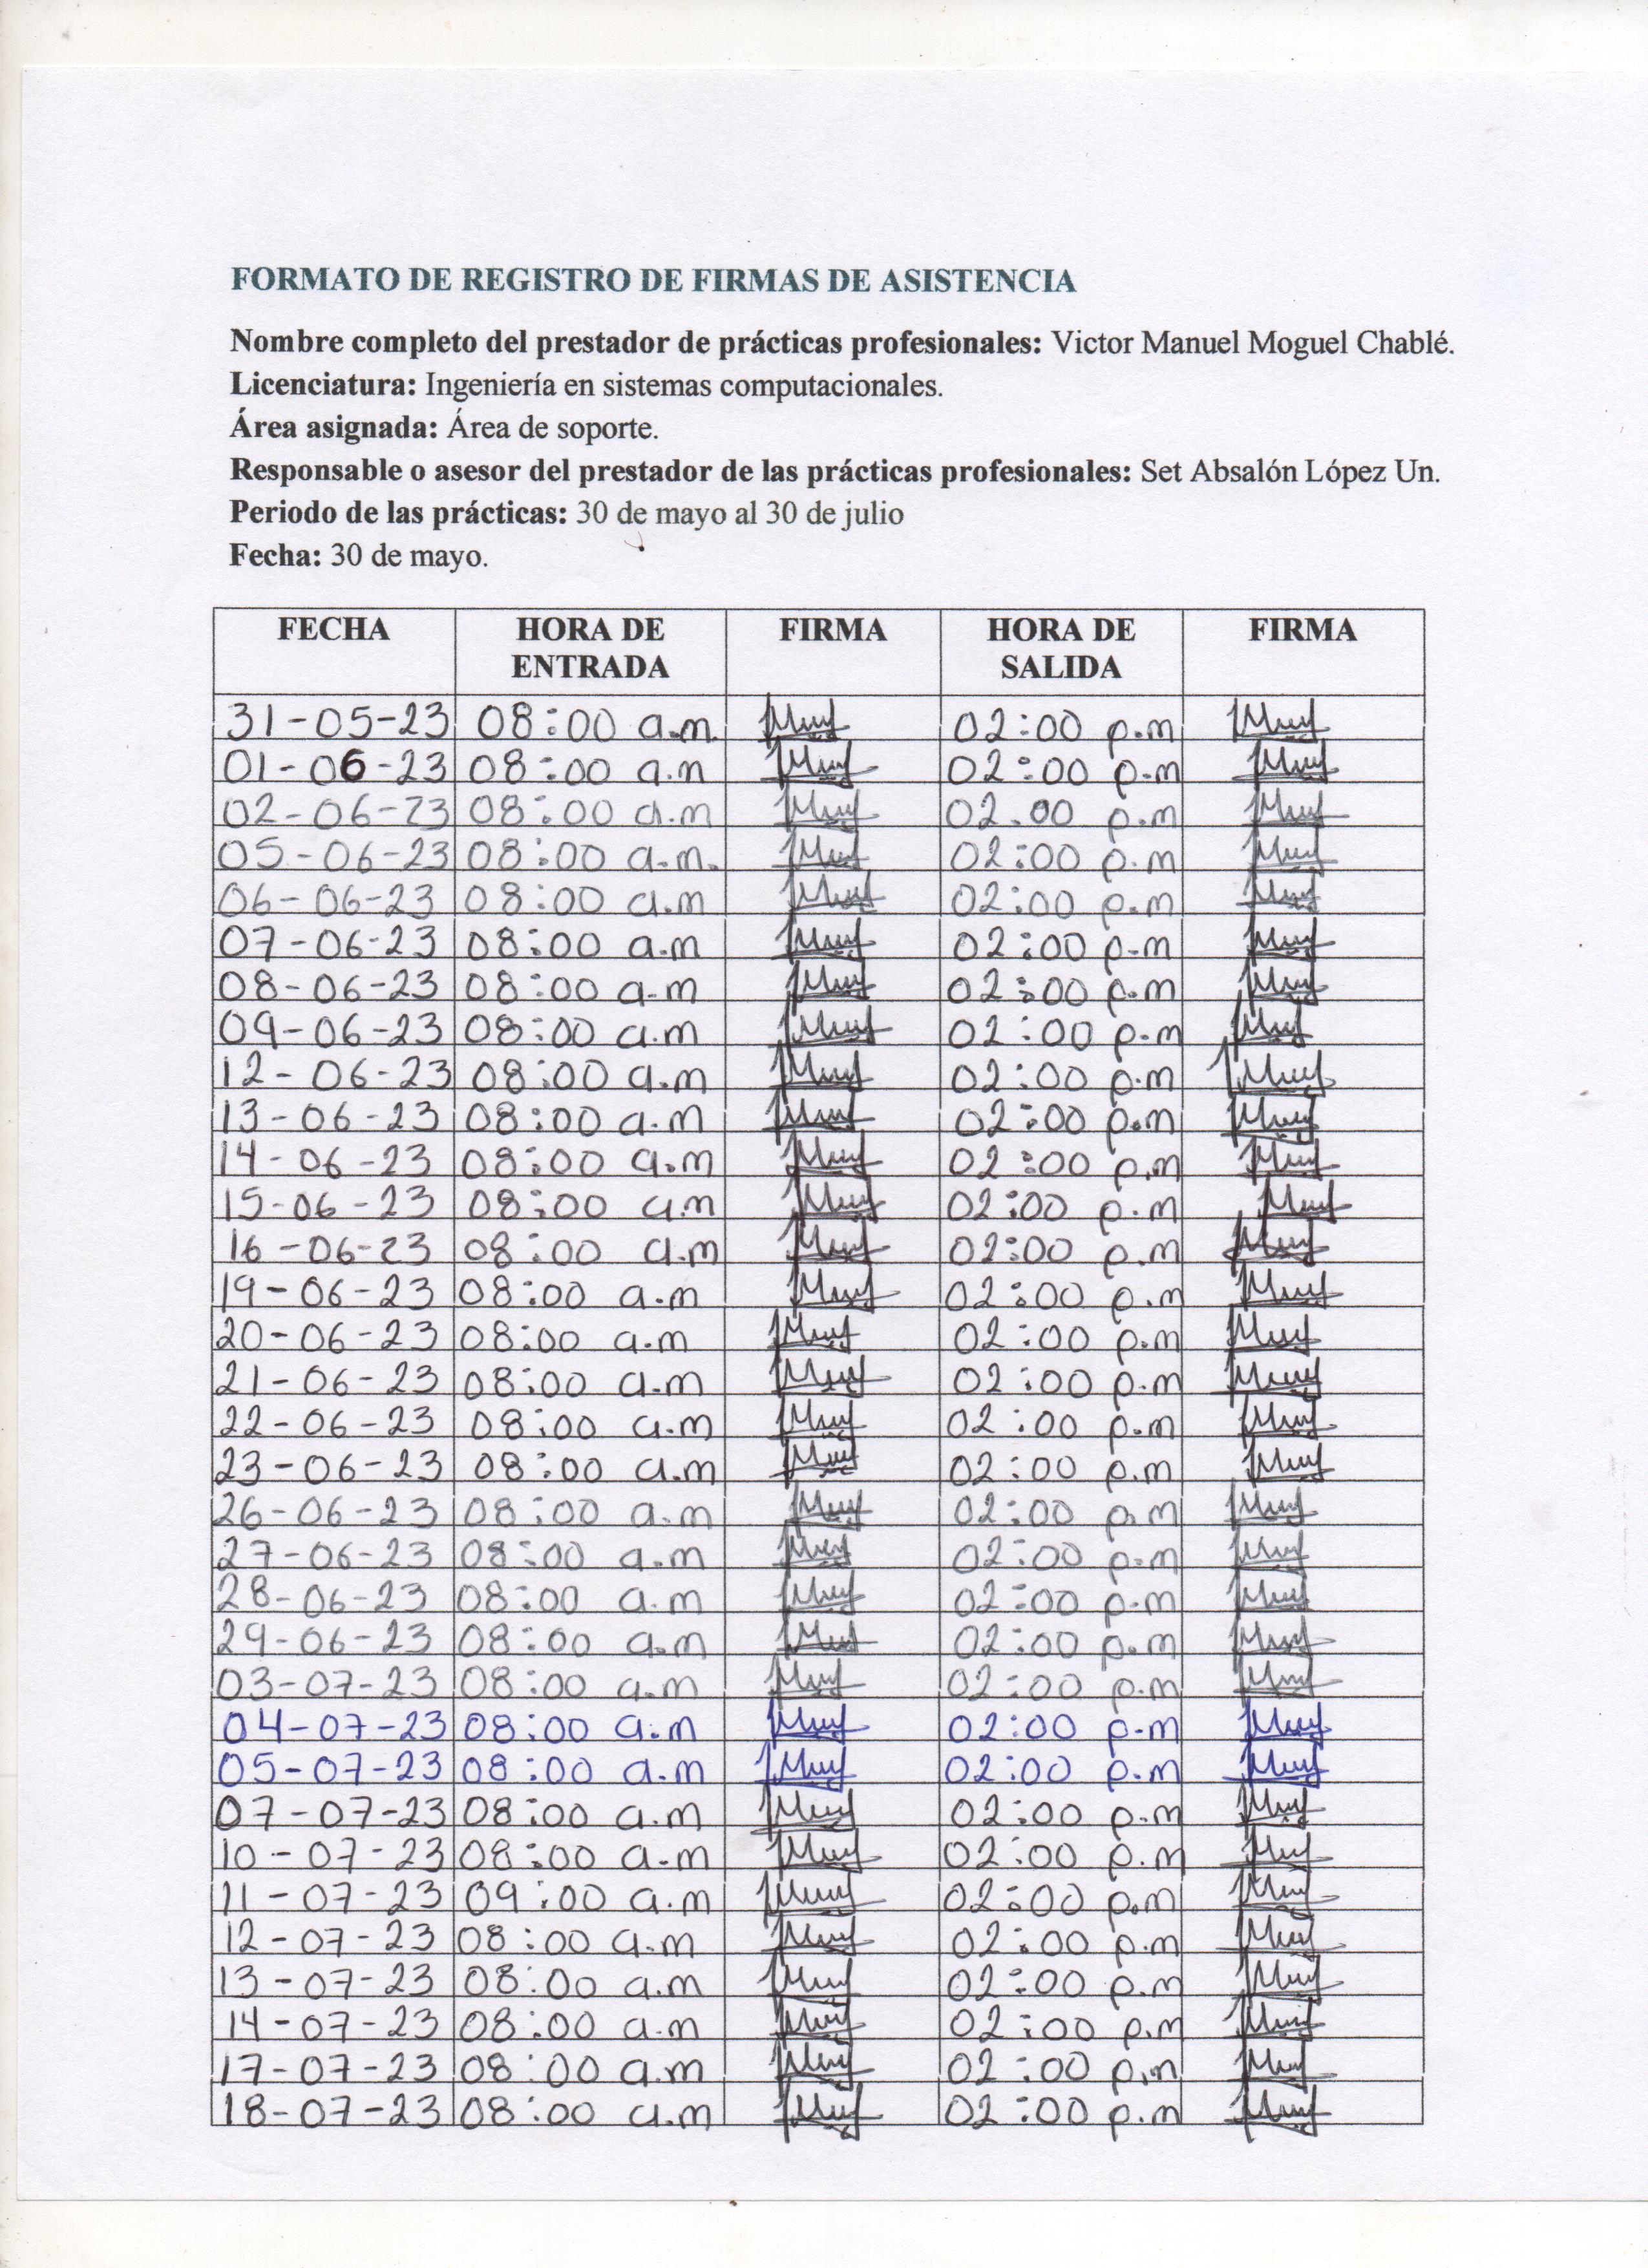 FORMATO DE REGISTRO DE FIRMAS DE ASISTENCIA
Nombre completo del prestador de prácticas profesionales: Victor Manuel Moguel Chablé.
Licenciatura: Ingeniería en sistemas computacionales.
Área asignada: Área de soporte.
Responsable o asesor del prestador de las prácticas profesionales: Set Absalón López Un.
Periodo de las prácticas: 30 de mayo al 30 de julio
Fecha: 30 de mayo.
FECHA HORA DE ENTRADA FIRMA HORA DE SALIDA FIRMA
31-05-23 08:00 a.m. 02:00 p.m
01-06-23 08:00 a.m 02:00 p.m
02-06-23 08:00 a.m 02.00 p.m
05-06-23 08:00 a.m. 02:00 p.m
06-06-23 08:00 a.m 02:00 p.m
07-06-23 08:00 a.m 02:00 p.m
08-06-23 08:00 a.m 02:00 p.m
09-06-23 08:00 a.m 02:00 p.m
12-06-23 08:00 a.m 02:00 p.m
13-06-23 08:00 a.m 02:00 p.m
14-06-23 08:00 a.m 02:00 p.m
15-06-23 08:00 a.m 02:00 p.m
16-06-23 08:00 a.m 02:00 p.m
19-06-23 08:00 a.m 02:00 p.m
20-06-23 08:00 a.m 02:00 p.m
21-06-23 08:00 a.m 02:00 p.m
22-06-23 08:00 a.m 02:00 p.m
23-06-23 08:00 a.m 02:00 p.m
26-06-23 08:00 a.m 02:00 p.m
27-06-23 08:00 a.m 02:00 p.m
28-06-23 08:00 a.m 02:00 p.m
29-06-23 08:00 a.m 02:00 p.m
03-07-23 08:00 a.m 02:00 p.m
04-07-23 08:00 a.m 02:00 p.m
05-07-23 08:00 a.m 02:00 p.m
07-07-23 08:00 a.m 02:00 p.m
10-07-23 08:00 a.m 02:00 p.m
11-07-23 09:00 a.m 02:00 p.m
12-07-23 08:00 a.m 02:00 p.m
13-07-23 08:00 a.m 02:00 p.m
14-07-23 08:00 a.m 02:00 p.m
17-07-23 08:00 a.m 02:00 p.m
18-07-23 08:00 a.m 02:00 p.m